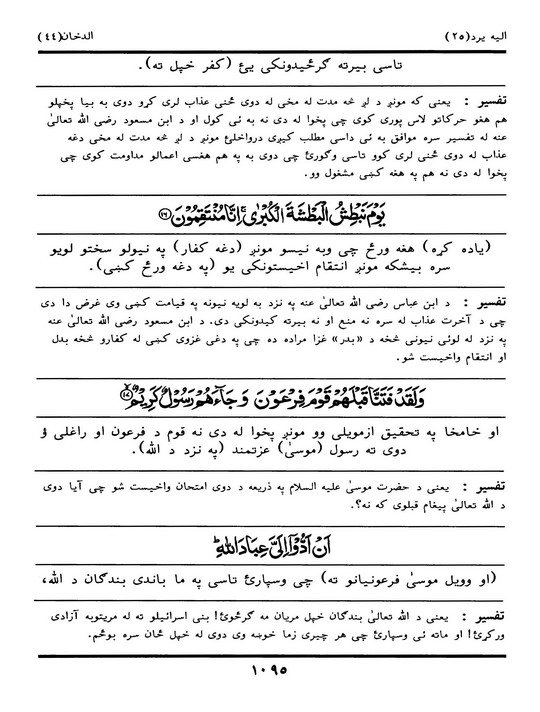 الیه یرد(۲۵) الدخان(٤٤)
تاسی بیرته گرځیدونکی یئ (کفر خپل ته).
تفسیر : یعنی که مونږ د لږ څه مدت له مخی له دوی څنی عذاب لری کړو دوی به بیا پخپلو
هم هغو حرکاتو لاس پوری کوی چی پخوا له دی نه به ئی کول او د ابن مسعود رضی الله تعالیٰ
عنه له تفسیر سره موافق به ئی داسی مطلب کیږی درواخلئ مونږ د لږ څه مدت له مخی دغه
عذاب له دوی څنی لری کوو تاسی وگورئ چی دوی به په هم هغسی اعمالو مداومت کوی چی
پخوا له دی نه هم په هغه کښی مشغول وو.
يَوْمَ نَبْطِشُ الْبَطْشَةَ الْكُبْرٰى ۚ اِنَّا مُنْتَقِمُوْنَ ⑯
(یاده کړه) هغه ورځ چی وبه نیسو مونږ (دغه کفار) په نیولو سختو لویو
سره بیشکه مونږ انتقام اخیستونکی یو (په دغه ورځ کښی).
تفسیر : د ابن عباس رضی الله تعالیٰ عنه په نزد به لویه نیونه په قیامت کښی وی غرض دا دی
چی د آخرت عذاب له سره نه منع او نه بیرته کیدونکی دی. د ابن مسعود رضی الله تعالیٰ عنه
په نزد له لوئی نیونی څخه د «بدر» غزا مراده ده چی په دغی غزوی کښی له کفارو څخه بدل
او انتقام واخیست شو.
وَلَقَدْ فَتَنَّا قَبْلَهُمْ قَوْمَ فِرْعَوْنَ وَجَآءَهُمْ رَسُوْلٌ كَرِيْمٌ ⑰
او خامخا په تحقیق ازمویلی وو مونږ پخوا له دی نه قوم د فرعون او راغلی ؤ
دوی ته رسول (موسیٰ) عزتمند (په نزد د الله).
تفسیر : یعنی د حضرت موسیٰ علیه السلام په ذریعه د دوی امتحان واخیست شو چی آیا دوی
د الله تعالیٰ پیغام قبلوی که نه؟.
اَنْ اَدُّوْٓا اِلَيَّ عِبَادَ اللهِ ؕ
(او وویل موسیٰ فرعونیانو ته) چی وسپارئ تاسی په ما باندی بندگان د الله،
تفسیر : یعنی د الله تعالیٰ بندگان خپل مریان مه گرځوئ! بنی اسرائیلو ته له مریتوبه آزادی
ورکړئ! او ماته ئی وسپارئ چی هر چیری زما خوښه وی دوی له خپل ځان سره بوځم.
۱۰۹۵